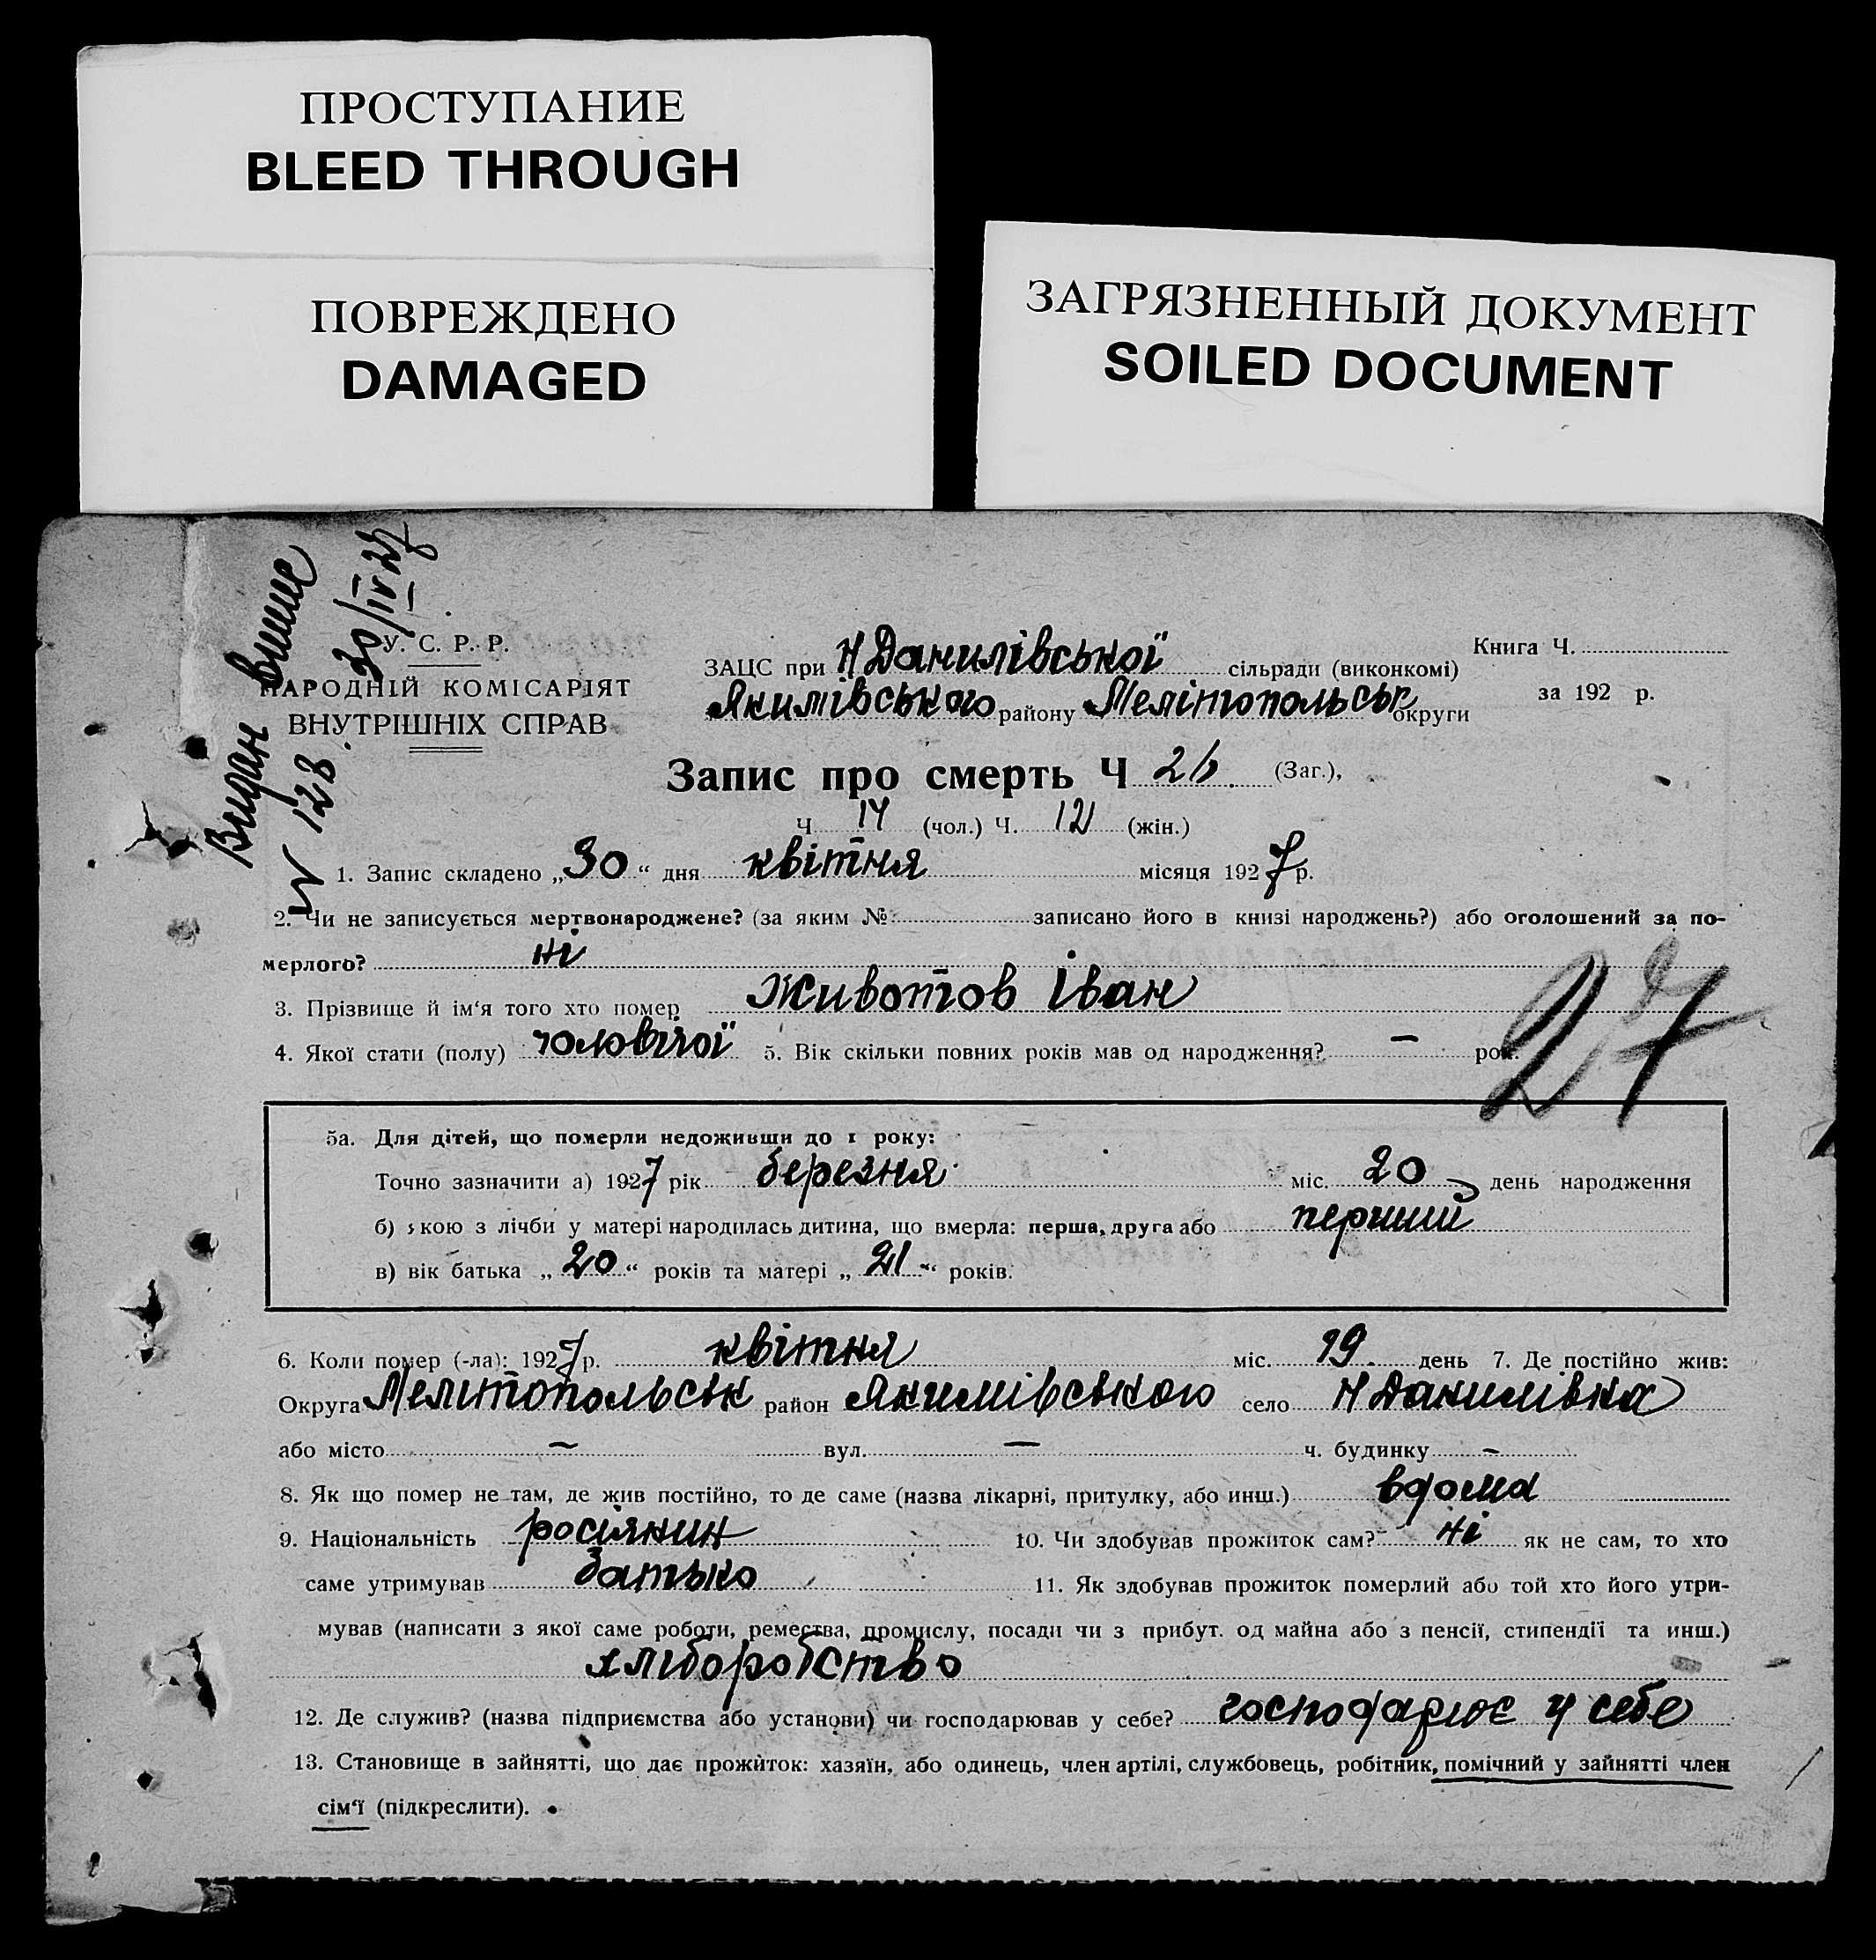 ПРОСТУПАНИЕ
BLEED THROUGH
ПОВРЕЖДЕНО
DAMAGED
ЗАГРЯЗНЕННЫЙ ДОКУМЕНТ
SOILED DOCUMENT
Видан
№ 123 30/IV 27
У. С. Р. Р.
НАРОДНІЙ КОМІСАРІЯТ
ВНУТРІШНІХ СПРАВ
ЗАЦС при Н Данилівської сільради (виконкомі)
Якимівського району Мелітопольськ округи
Книга Ч.
за 192 р.
Запис про смерть Ч 26 (Заг.),
Ч 14 (чол.) Ч. 12 (жін.)
1. Запис складено „30“ дня квітня місяця 1927 р.
2. Чи не записується мертвонароджене? (за яким № записано його в книзі народжень?) або оголошений за по-
мерлого? ні
3. Прізвище й ім‘я того хто помер Животов Іван
4. Якої стати (полу) чоловічої 5. Вік скільки повних років мав од народження? — рок.
27
5а. Для дітей, що померли недоживши до 1 року:
Точно зазначити а) 1927 рік березня міс. 20 день народження
б) якою з лічби у матері народилась дитина, що вмерла: перша, друга або перший
в) вік батька „20“ років та матері „21“ років.
6. Коли помер (-ла): 1927 р. квітня міс. 19 день 7. Де постійно жив:
Округа Мелітопольськ район Якимівського село Н Данилівка
або місто — вул. — ч. будинку —
8. Як що помер не там, де жив постійно, то де саме (назва лікарні, притулку, або инш.) вдома
9. Національність росіянин 10. Чи здобував прожиток сам? ні як не сам, то хто
саме утримував батько 11. Як здобував прожиток померлий або той хто його утри-
мував (написати з якої саме роботи, ремества, промислу, посади чи з прибут. од майна або з пенсії, стипендії та инш.)
хліборобство
12. Де служив? (назва підприємства або установи) чи господарював у себе? господарює у себе
13. Становище в зайнятті, що дає прожиток: хазяїн, або одинець, член артілі, службовець, робітник, помічний у зайнятті член
сім‘ї (підкреслити).